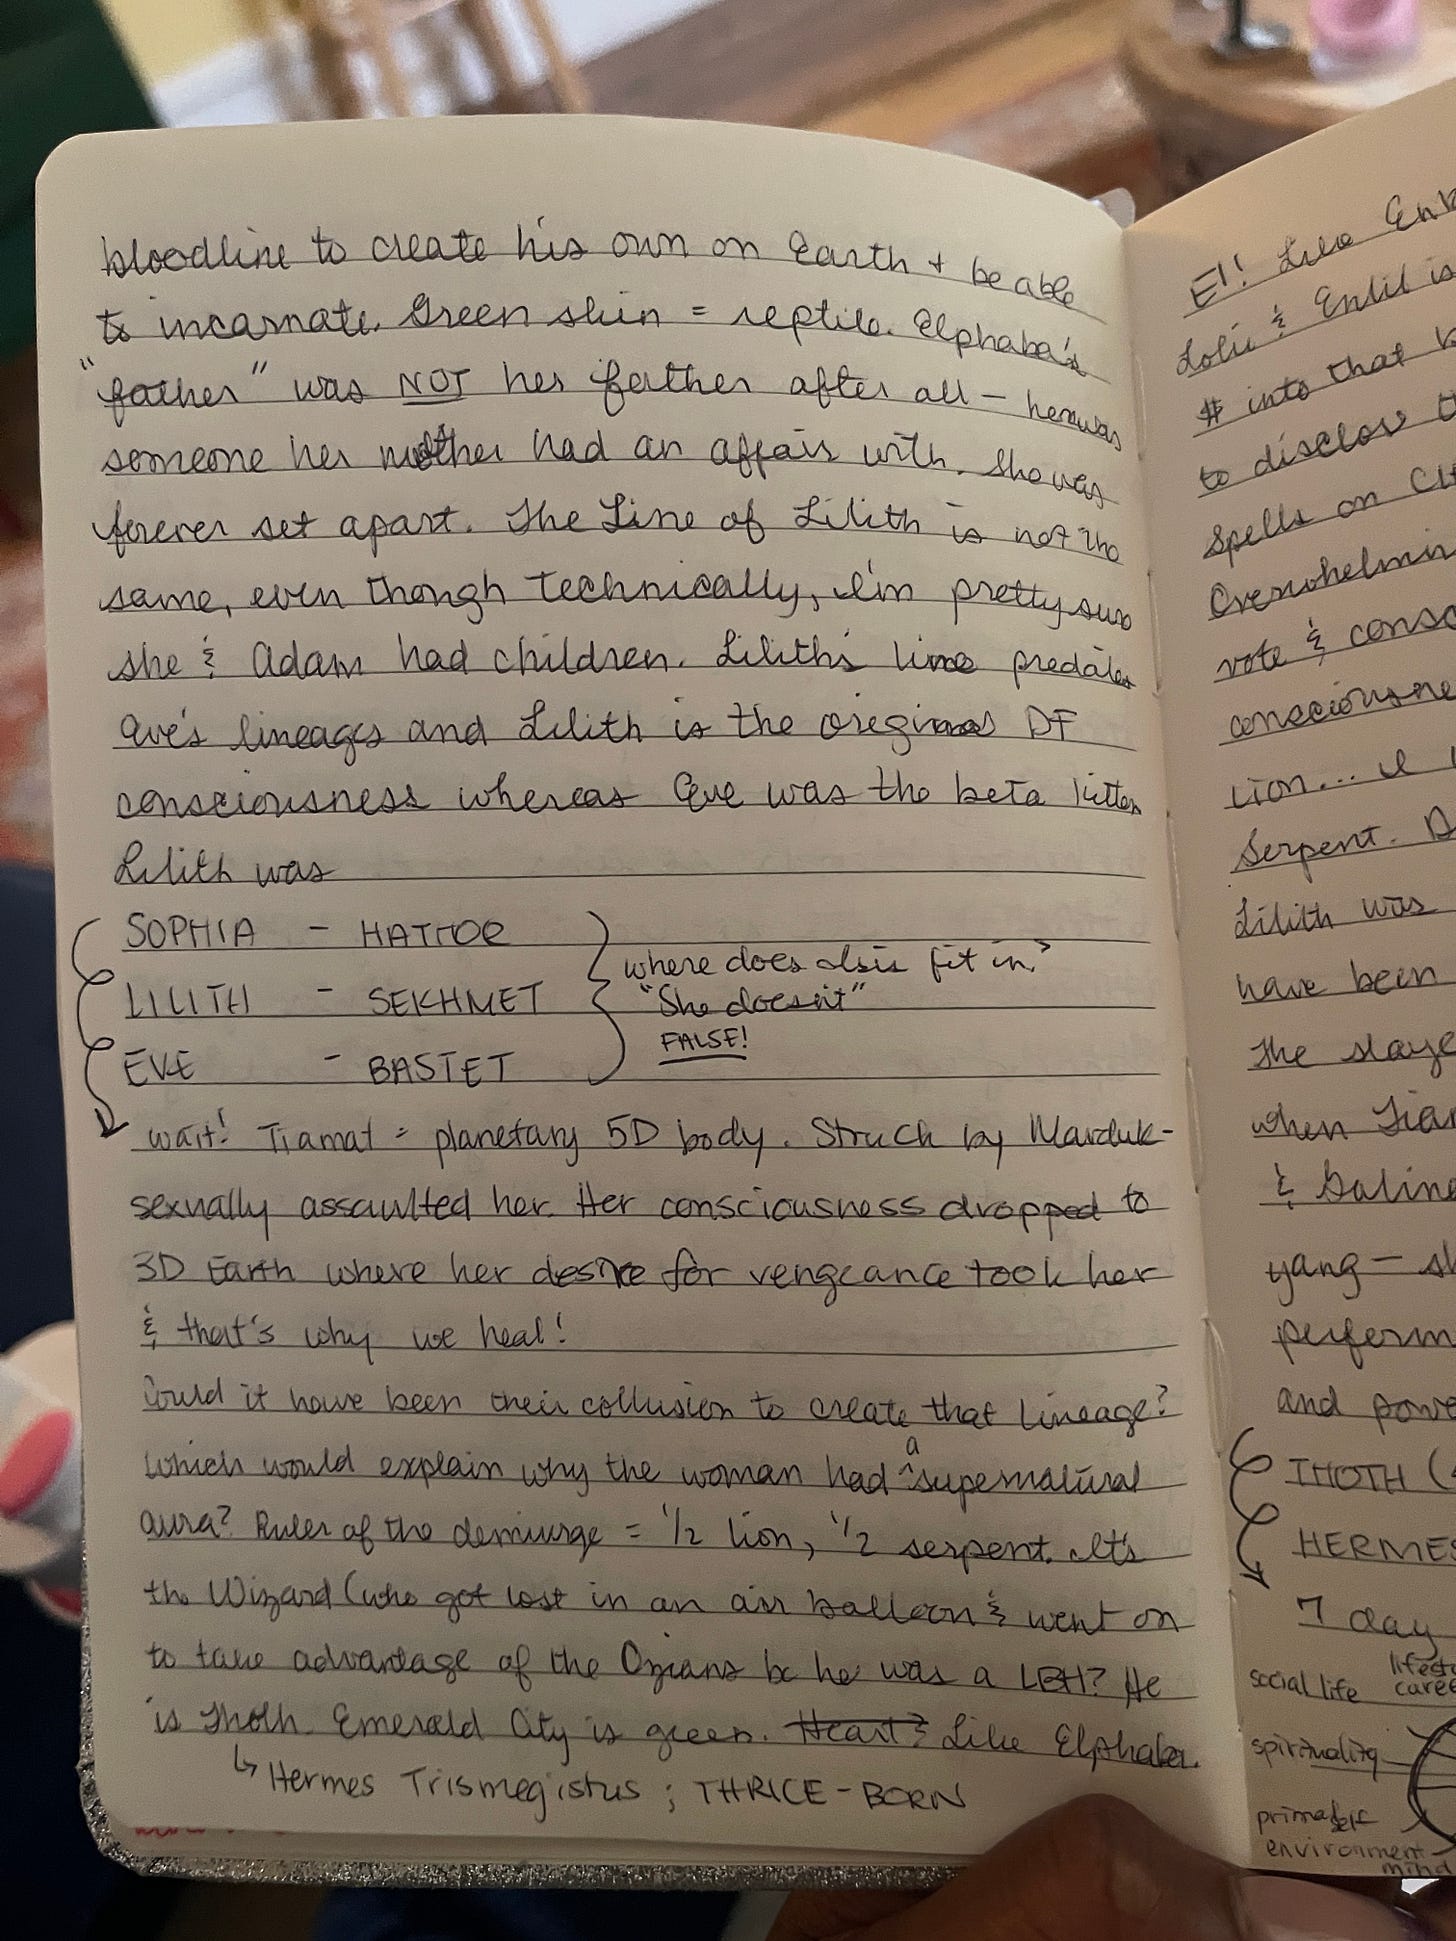 bloodline to create his own on Earth + be able
to incarnate. Green skin = reptile. Elphaba's
"father" was NOT her father after all – he was
someone her mother had an affair with. She was
forever set apart. The Line of Lilith is not the
same, even though technically, I'm pretty sure
she & Adam had children. Lilith's line predates
Eve's lineages and Lilith is the original DF
consciousness whereas Eve was the beta kitten
Lilith was
SOPHIA – HATHOR
LILITH – SEKHMET
EVE – BASTET
where does Isis fit in?
"She doesn't"
FALSE!
wait! Tiamat = planetary 5D body. Struck by Marduk-
sexually assaulted her. Her consciousness dropped to
3D Earth where her desire for vengeance took her
& that's why we heal!
Could it have been their collusion to create that lineage?
Which would explain why the woman had a supernatural
aura? Ruler of the demiurge = 1/2 lion, 1/2 serpent. It's
the Wizard (who got lost in an air balloon & went on
to take advantage of the Ozians bc he was a LBH? He
is Thoth. Emerald City is green. Heart? Like Elphaba.
↳ Hermes Trismegistus ; THRICE-BORN
E!! Like
& Enlil is
# into that
to disclose
Spells on
vote &
lion... I
Serpent.
Lilith was
have been
The
when
&
yang –
and
THOTH
HERMES
7 day
social life
spirituality
primal self
environment
mind